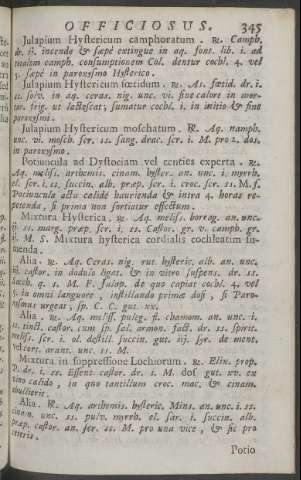 OFFICIOSUS. 345
Julapium Hystericum camphoratum. ℞. Camph.
dr. ß. incende & sæpè extingue in aq. font. lib. i. ad
totalem camph. consumptionem Col. dentur cochl. 4. vel
5. sæpè in paroxysmo Hysterico.
Julapium Hystericum fœtidum. ℞. As. fœtid. dr. i.
ss. solv. in aq. ceras. nig. unc. vi. sine calore in mor-
tar. frig. ut lactescat, sumatur cochl. i. in initio & fine
paroxysmi.
Julapium Hystericum moschatum. ℞. Aq. nanph.
unc. vi. mosch. scr. ss. sang. drac. scr. i. M. pro 2. dos.
in paroxysmo.
Potiuncula ad Dystociam vel centies experta. ℞.
Aq. meliss. arthemis. cinam. hyster. an. unc. i. myrrh.
el. scr. i. ss. succin. alb. præp. scr. i. croc. scr. ss. M. f.
Potiuncula actu calidè haurienda & intra 4. horas re-
petenda, si prima non sortiatur effectum.
Mixtura Hysterica. ℞. Aq. meliss. borrag. an. unc.
ss. marg. præp. scr. i. ss. Castor. gr. v. camph. gr.
ii. M. S. Mixtura hysterica cordialis cochleatim su-
menda.
Alia. ℞. Aq. Ceras. nig. rut. hysteric. alb. an. unc.
castor. in nodulo ligat. & in vitro suspens. dr. ss.
sacch. q. s. M. F. Julap. de quo capiat cochl. 4. vel
5. in omni languore, instillando primæ dosi, si Paro-
xysmus urgeat, sp. C. C. gut. xv.
Alia. ℞. Aq. meliss. puleg. fl. chamom. an. unc. i.
ss. tinct. castor. cum sp. sal. armon. fact. dr. ss. spirit.
meliss. scr. i. ol. destill. succin. gut. iij. syr. de ment.
vel cort. arant. unc. ss. M.
Mixtura in suppressione Lochiorum. ℞. Elix. prop.
P. dr. i. ss. essent. castor. dr. i. M. dos. gut. xv. ex
vino calido, in quo tantillum croc. mac. & cinam.
ebullierit.
Alia. ℞. Aq. arthemis. hysteric. Mins. an. unc. i. ss.
cinam. unc. ss. pulv. myrrh. el. scr. i. succin. alb.
præp. castor. an. scr. ss. M. pro una vice, & sic pro
ceteris.
Potio